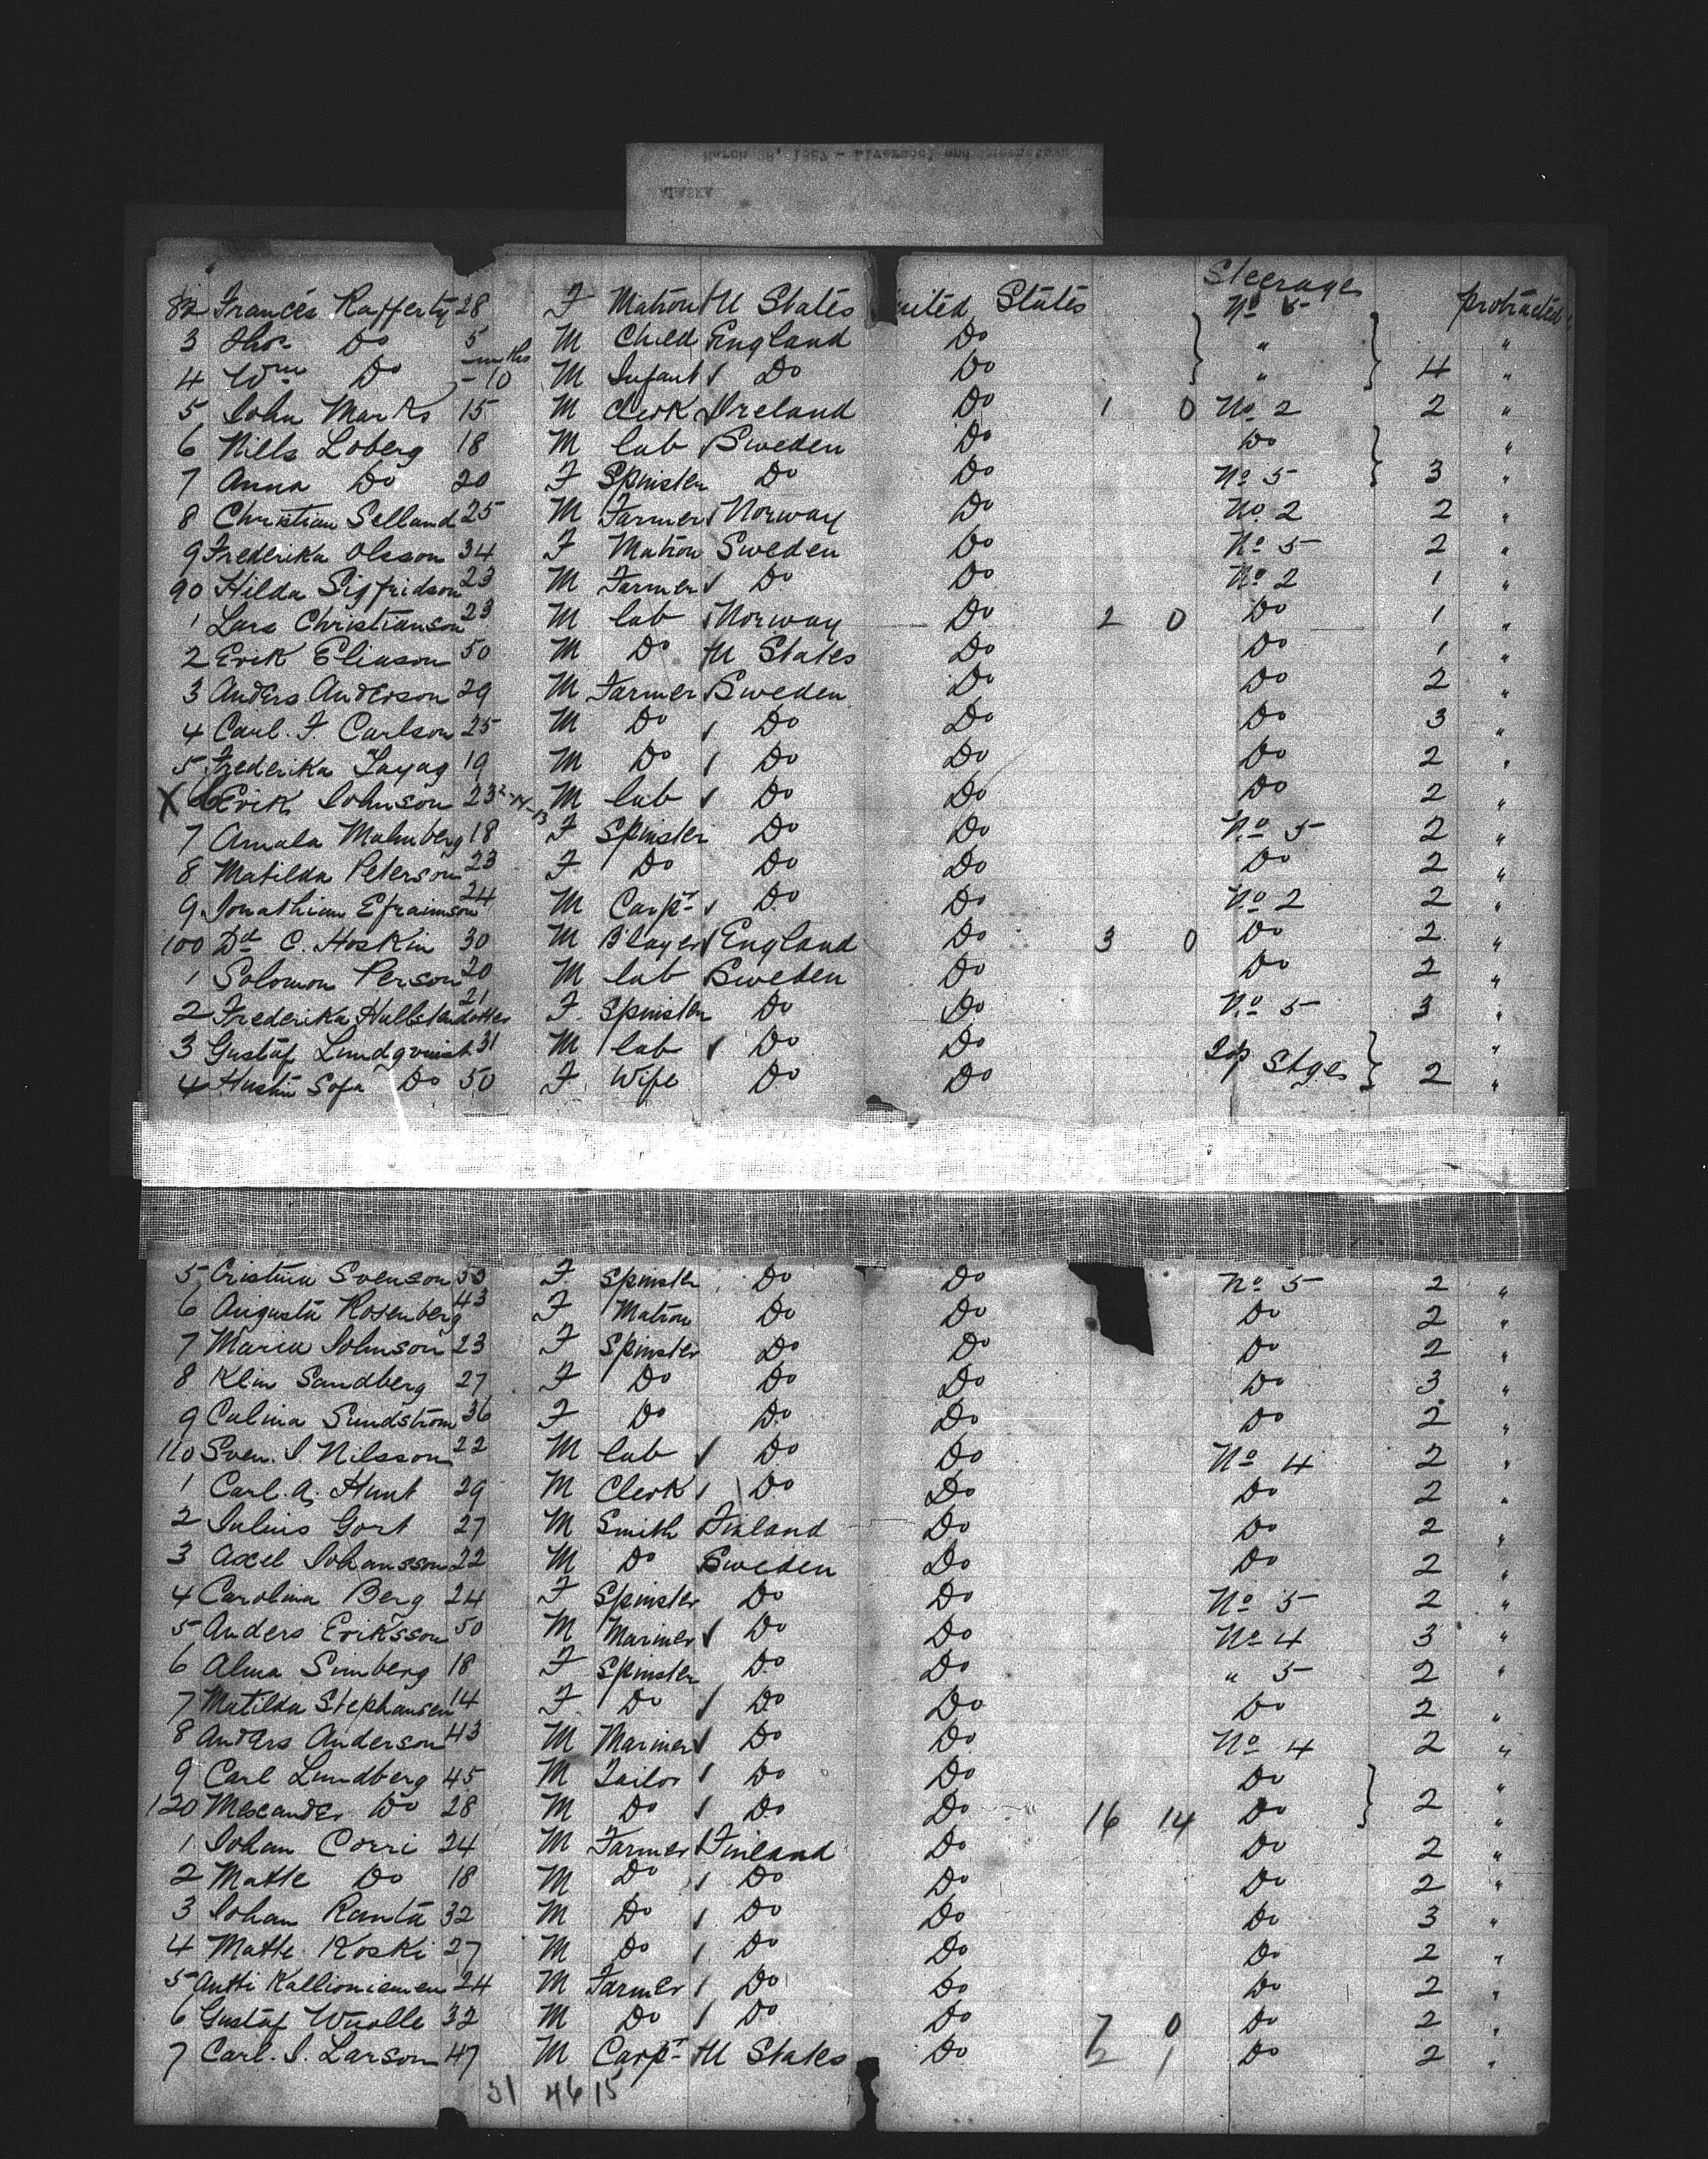 March 28, 1887 - Liverpool and Queenstown
ALASKA
Steerage
82 Frances Rafferty 28 F Matron U States United States No 5 protracted
3 Thos Do 5 M Child England Do " "
4 Wm Do mths 10 M Infant Do Do " 4 "
5 John Marks 15 M Clerk Ireland Do 1 0 No 2 2 "
6 Nills Loberg 18 M lab Sweden Do Do "
7 Anna Do 20 F Spinster Do Do No 5 3 "
8 Christian Selland 25 M Farmer Norway Do No 2 2 "
9 Frederika Olsson 34 F Matron Sweden Do No 5 2 "
90 Hilda Sigfridson 23 M Farmer Do Do No 2 1 "
1 Lars Christianson 23 M lab Norway Do 2 0 Do 1 "
2 Erik Eliason 50 M Do U States Do Do 1 "
3 Anders Anderson 29 M Farmer Sweden Do Do 2 "
4 Carl. F. Carlson 25 M Do Do Do Do 3 "
5 Frederika 19 M Do Do Do Do 2 "
X 6 Erik Johnson 23 M lab Do Do Do 2 "
7 Amala Malmberg 18 F Spinster Do Do No 5 2 "
8 Matilda Peterson 23 F Do Do Do Do 2 "
9 Jonathian Efraimson 24 M Carpr Do Do No 2 2 "
100 Dd C. Hoskin 30 M B'layer England Do 3 0 Do 2 "
1 Solomon Person 20 M lab Sweden Do Do 2 "
2 Frederika 21 F Spinster Do Do No 5 3 "
3 Gustaf Lundqvist 31 M lab Do Do "
4 Sofa Do 50 F Wife Do Do Stge 2 "
5 Cristina Svenson F Spinster Do Do No 5 2 "
6 Augusta Rosenberg 43 F Matron Do Do Do 2 "
7 Maria Johnson 23 F Spinster Do Do Do 2 "
8 Klin Sandberg 27 F Do Do Do Do 3 "
9 Culina Sundstrom 36 F Do Do Do Do 2 "
110 Sven. J. Nilsson 22 M lab Do Do No 4 2 "
1 Carl. A. Hunt 29 M Clerk Do Do Do 2 "
2 Julius Gort 27 M Smith Finland Do Do 2 "
3 Axel Johansson 22 M Do Sweden Do Do 2 "
4 Carolina Berg 24 F Spinster Do Do No 5 2 "
5 Anders Eriksson 50 M Mariner Do Do No 4 3 "
6 Alma Simberg 18 F Spinster Do Do " 5 2 "
7 Matilda Stephansen 14 F Do Do Do Do 2 "
8 Anders Anderson 43 M Mariner Do Do No 4 2 "
9 Carl Lundberg 45 M Tailor Do Do Do "
120 Do 28 M Do Do Do 16 14 Do 2 "
1 Johan Corri 24 M Farmer Finland Do Do 2 "
2 Matte Do 18 M Do Do Do Do 2 "
3 Johan Ranta 32 M Do Do Do Do 3 "
4 Matte Koski 27 M Do Do Do Do 2 "
5 Antti Kallioniemen 24 M Farmer Do Do Do 2 "
6 Gustaf Wuolle 32 M Do Do Do 7 0 Do 2 "
7 Carl. J. Larson 47 M Carpr U States Do 2 1 Do 2 "
31 46 15